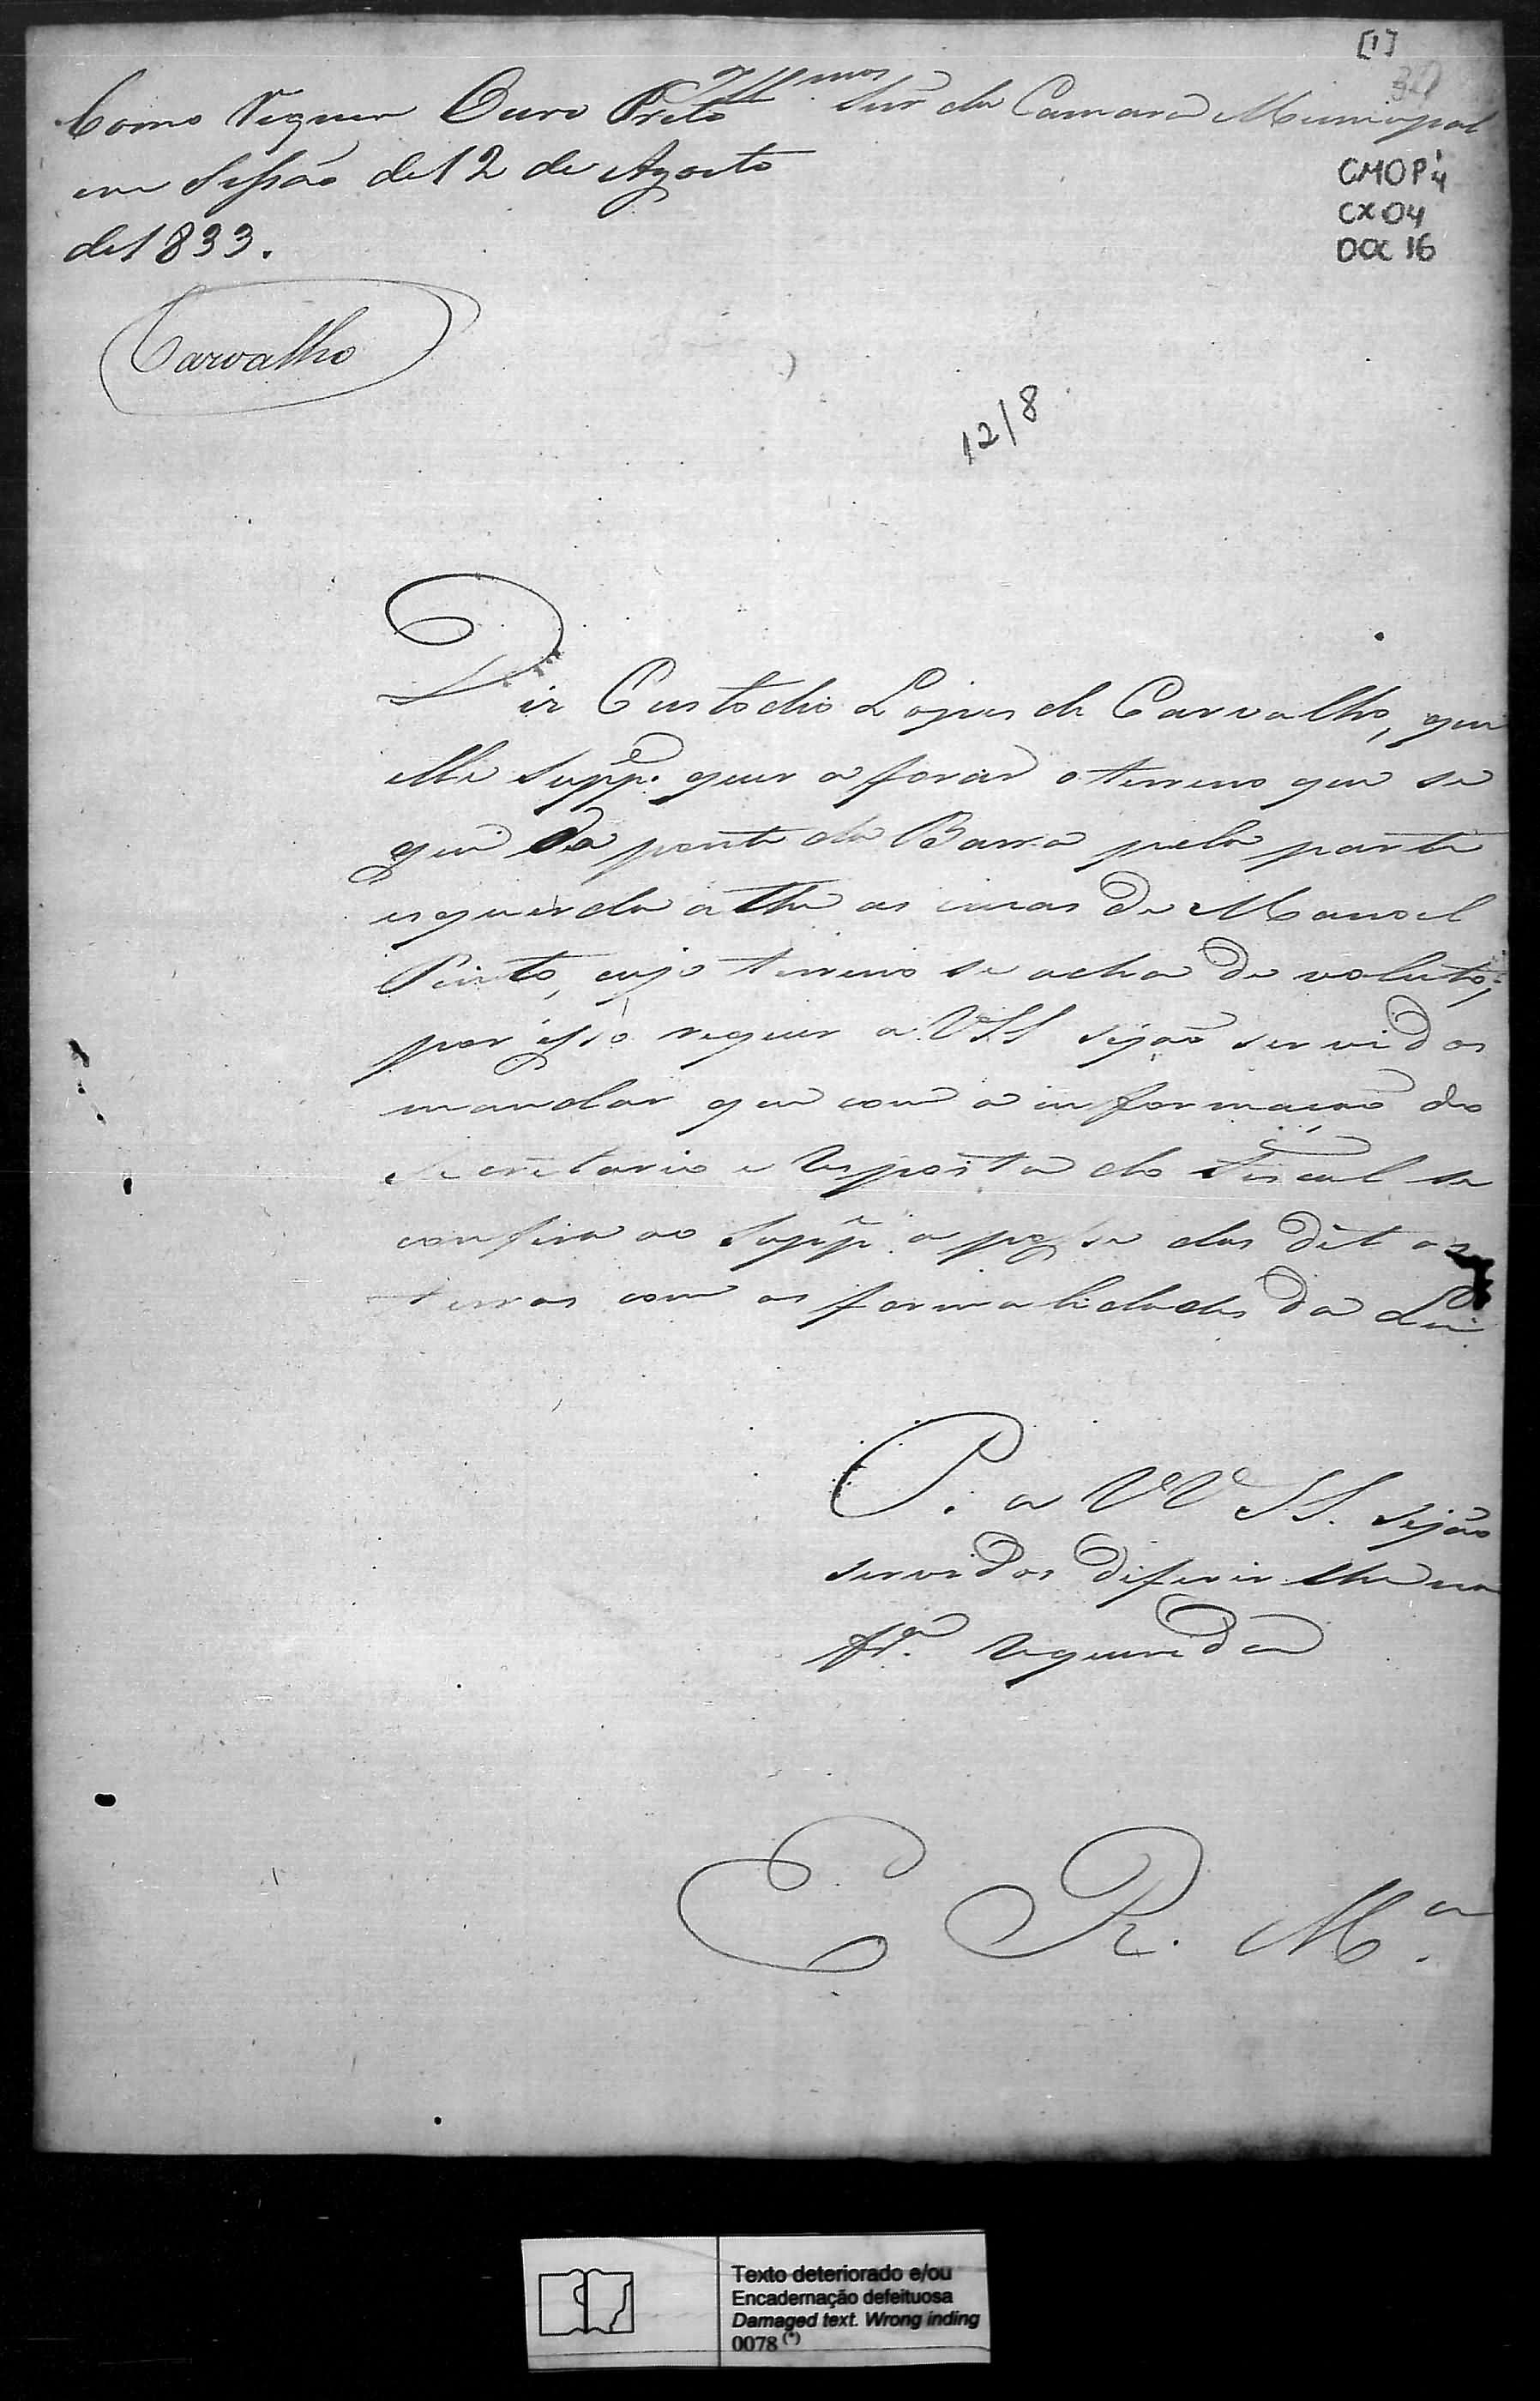 [1]
39
Ill.mos Snr da Camara Municipal
Como requer Ouro Preto
em Sessão de 12 de Agosto
de 1833.
Carvalho
CMOP 4
CX 04
DOC 16
12/8
Diz Custodio Lopes de Carvalho, que
elle Supp.e quer aforar o terreno que se
gue da ponte da Barra pela parte
esquerda athe as casas de Manoel
Pinto, cujo terreno se acha devoluto,
por isso requer a VSS sejão servidos
mandar que com a informacão do
Secretario e resposta do Fiscal se
confira ao Supp.e a posse das ditas
terras com as formalidades da Lei.
P. a VV SS. sejão
servidos diferir lhe na
fr.a requerida
E R. M.ce
Texto deteriorado e/ou
Encadernação defeituosa
Damaged text. Wrong inding
0078 (*)